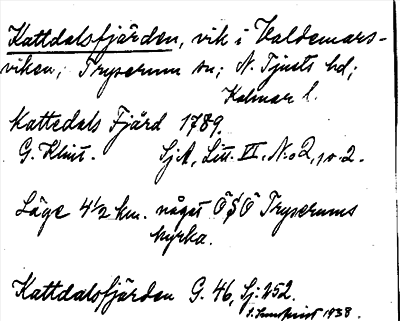 Kattdalsfjärden, vik i Valdemars-
viken, Tryserum sn; N. Tjusts hd;
Kalmar l.
Kattedals Fjärd 1789.
G. Klint. SjA, Litt. II, N:o 2, 10.2.
Läge 4½ km. något Ö Tryserums
kyrka.
Kattdalsfjärden G. 46, Sj. 252.
1938.